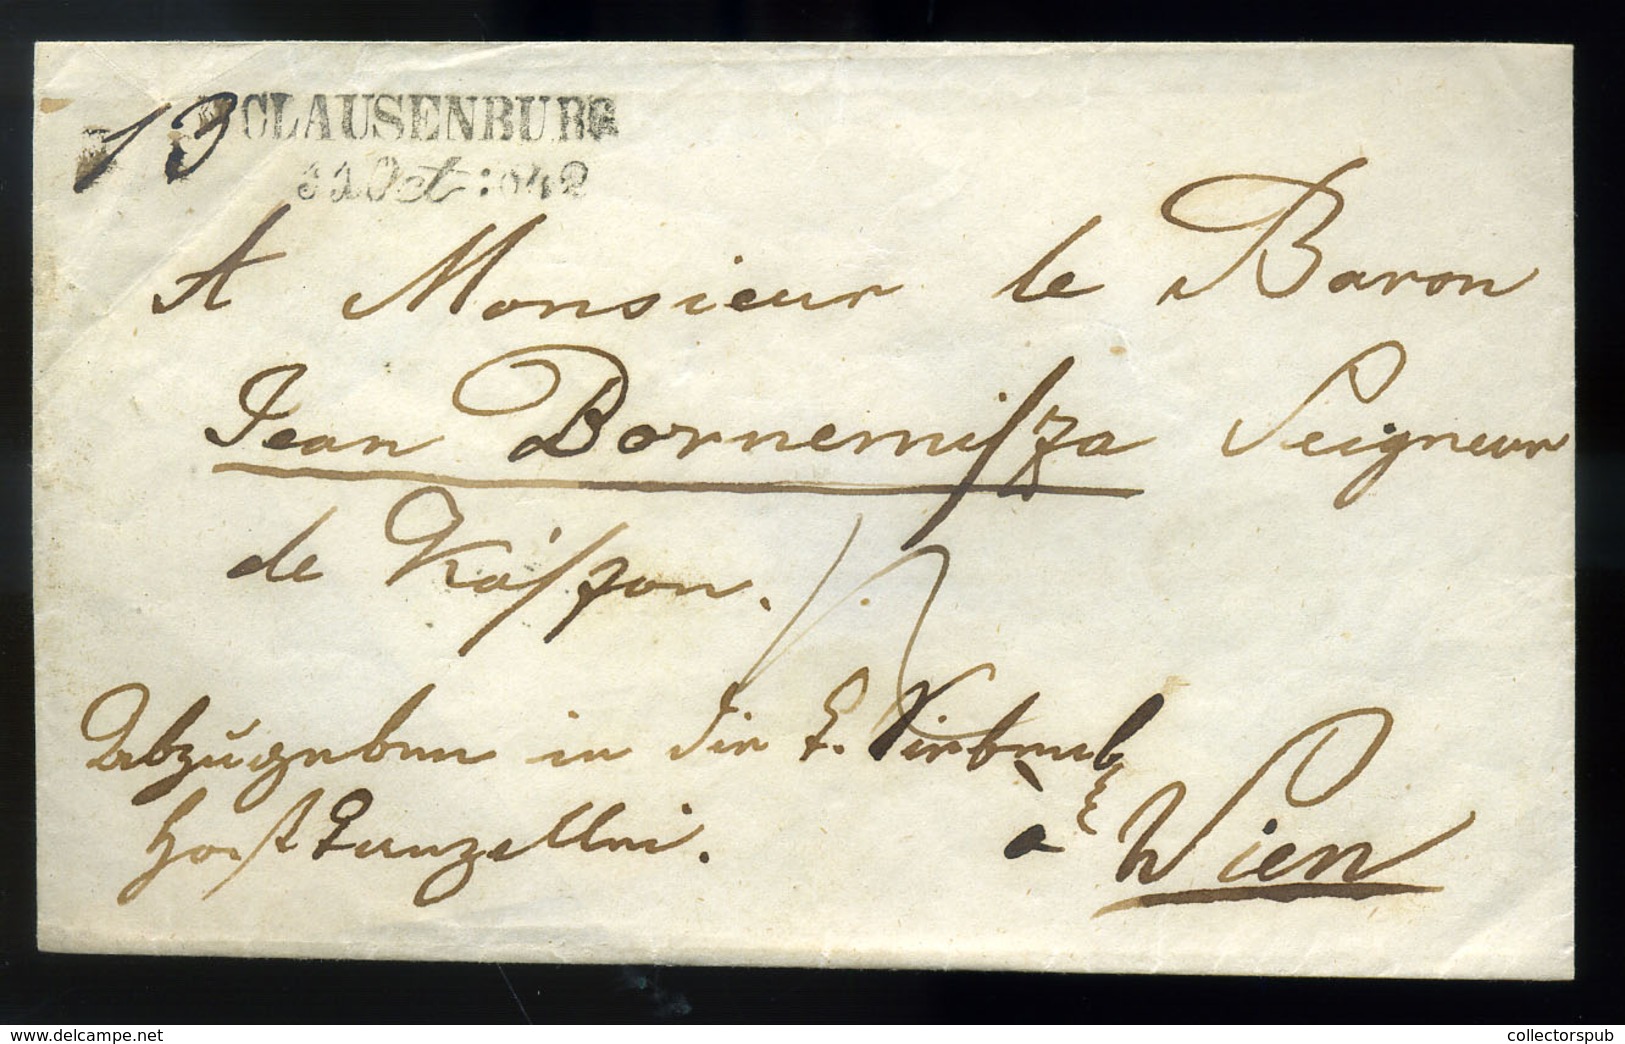 13
CLAUSENBURG
11 Oct: 842
A Monsieur le Baron
Jean Bornemisza Seigneur
de Kászon.
Abzugeben in der k. Siebenb
Hofkanzellei.
à Wien
www.delcampe.net
collectorspub